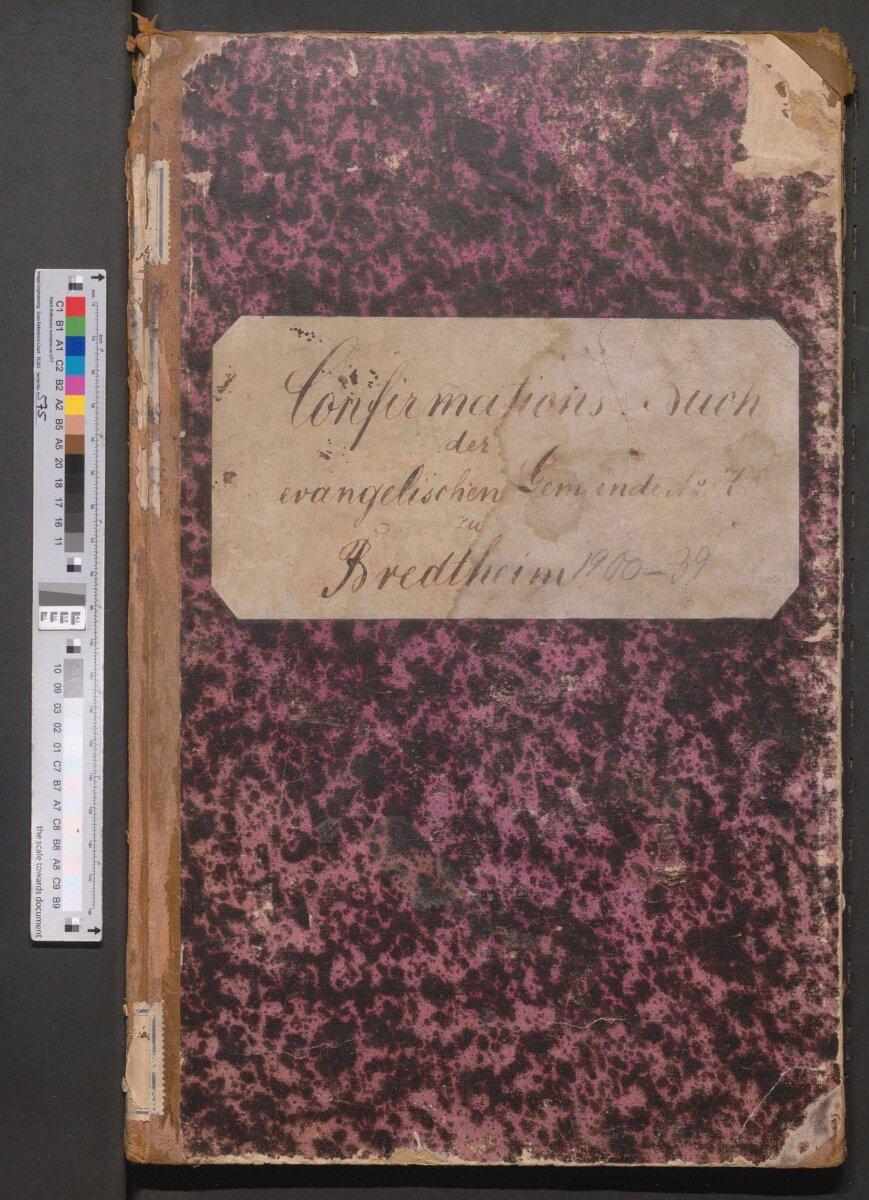 Confirmations Buch
der
evangelischen Gemeinde A. K.
zu
Bredtheim 1900-39
575
C1 B1 A1 C2 B2 A2 B5 A5 20 18 17 16 11
10 09 03 02 01 C7 B7 A7 C8 B8 A8 C9 B9
the scale towards document